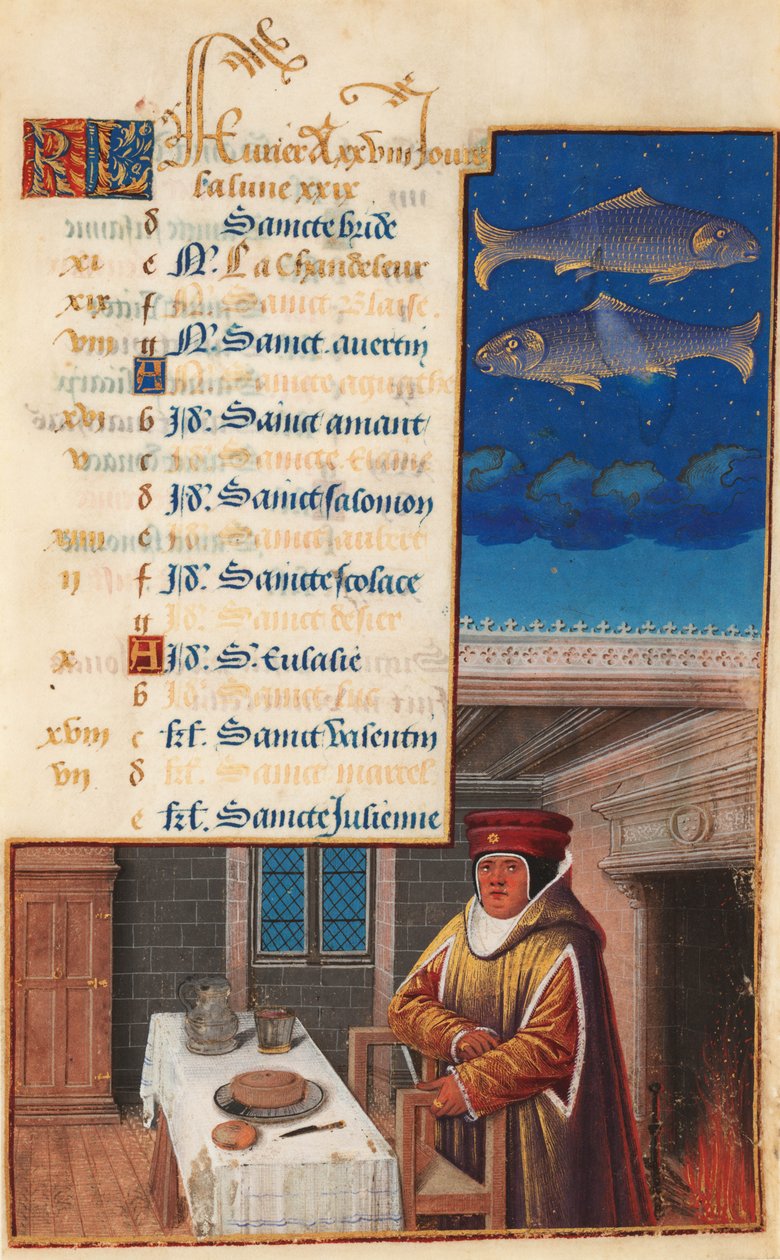 KL Feurier a xxviii Jours
La lune xxix
d Saincte bride
xi e N°. La Chandeleur
xix f N°. Sainct Blaise.
viii g N°. Sainct auertin
A N°. Saincte agathe
xvi b Id°. Sainct amant
v c Id°. Saincte
d Id°. Sainct salomon
xiii e Id°. Sainct aubert
ii f Id°. Saincte scolace
g Id°. Sainct desier
x A Id°. Se. Eulalie
b Id°. Sainct luc
xviii c kl. Sainct valentin
vii d kl. Sainct marcel
e kl. Saincte Julienne